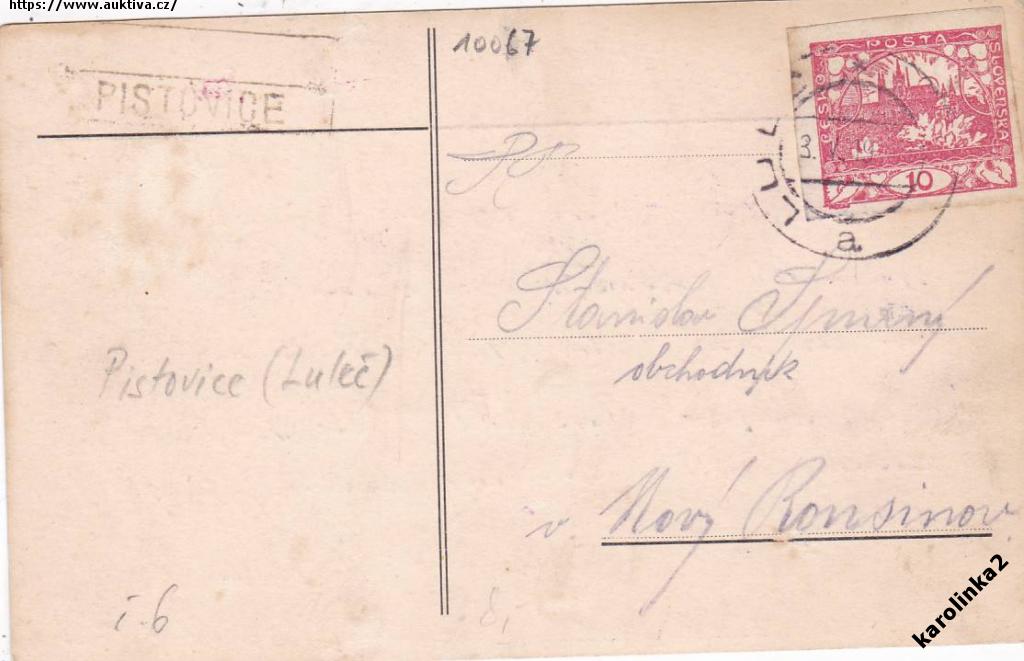 https://www.auktiva.cz/
10067
PISTOVICE
POŠTA
SLOVENSKÁ
10
a
Stanislav
obchodník
Pistovice (Luleč)
v. Nový Rousinov
i.6
8,-
karolinka2